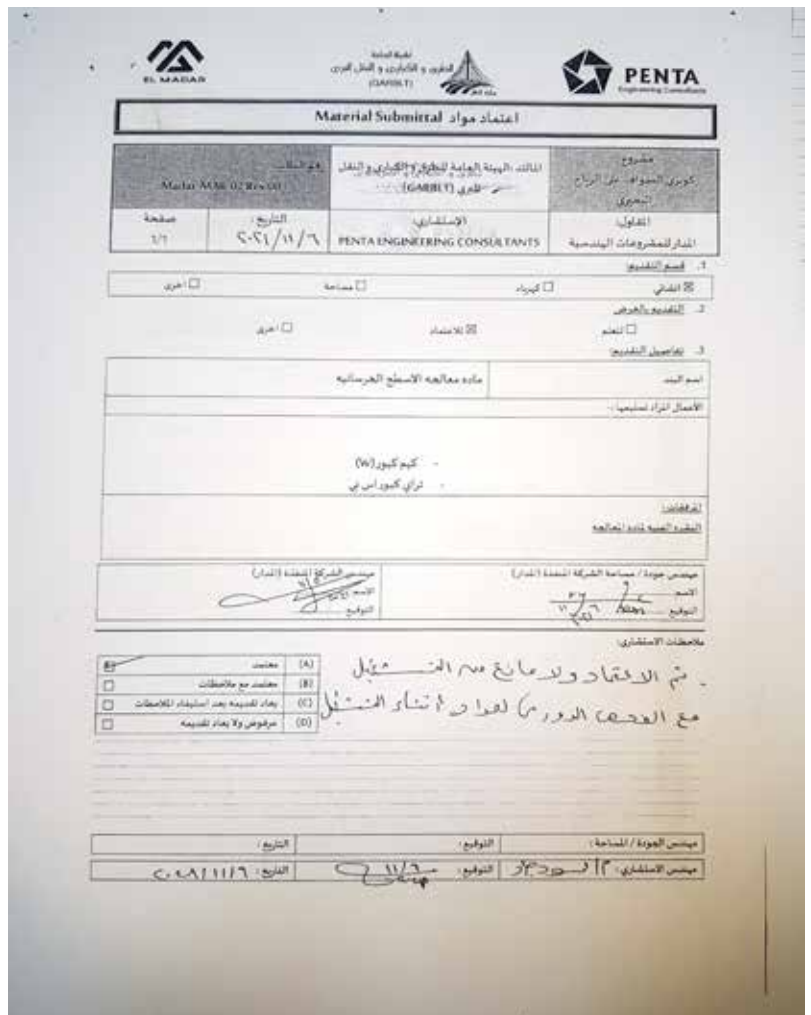 EL MADAR
الهيئة العامة
للطرق و الكباري و النقل البري
(GARBLT)
PENTA
Engineering Consultants
اعتماد مواد Material Submittal
مشروع
المالك: الهيئة العامة للطرق والكباري والنقل
البري (GARBLT)
Madar-MAR-02 Rev.00
المقاول:
المدار للمشروعات الهندسية
الإستشاري:
PENTA ENGINEERING CONSULTANTS
التاريخ:
٢٠٢١/١١/٦
صفحة
1/1
1. قسم التقديم:
☒ انشائي ☐ كهرباء ☐ مساحة ☐ اخرى
2. التقديم بالغرض
☐ للعلم ☒ للاعتماد ☐ اخرى
3. تفاصيل التقديم:
اسم البند
ماده معالجه الاسطح الخرسانيه
الأعمال المراد تسليمها:-
- كيم كيور (W)
- تراي كيور اس بي
المرفقات:
ماده المعالجه
مهندس جودة / مساحة الشركة المنفذة (المدار)
الاسم
التوقيع
مهندس الشركة المنفذة (المدار)
الاسم
التوقيع
ملاحظات الاستشاري:
(A) معتمد
(B) معتمد مع ملاحظات
(C) يعاد تقديمه بعد استيفاء الملاحظات
(D) مرفوض ولا يعاد تقديمه
- تم الاعتماد ولا مانع من التشغيل
مع الفحص الدوري للمواد أثناء التشغيل
مهندس الجودة / المساحة: التوقيع: التاريخ:
مهندس الاستشاري: التوقيع: ١١/٦ التاريخ: